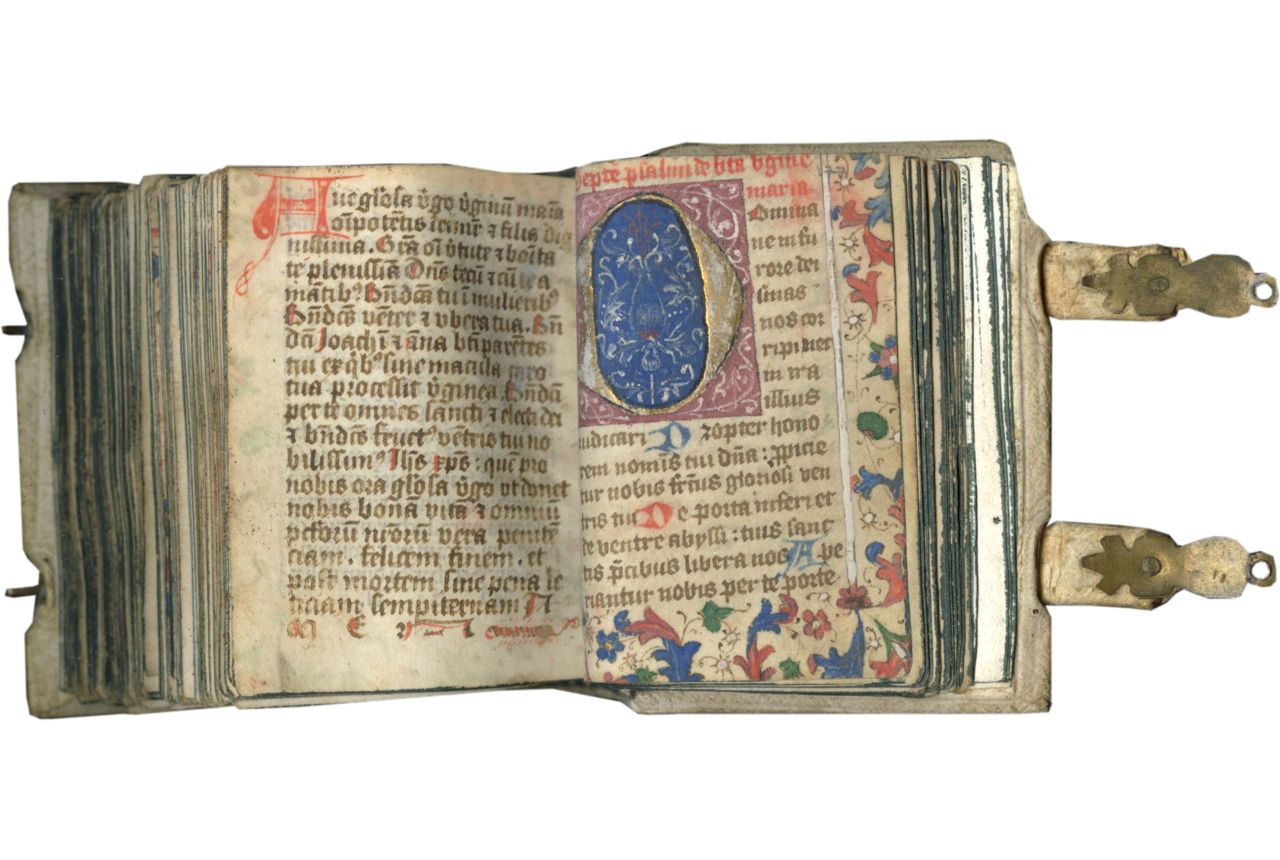 Aue gl'osa v'go v'ginū maria
om̄ipotētis
nissima. Gr̄a oī v'tute ⁊ boīta
te plenissīa Dn̄s tecū ⁊ cū tea
mātib⁹ Bn̄dcā tu ī mulierib⁹
Bn̄dcūs vēter ⁊ vbera tua. Bn̄
dcti Joachī ⁊ āna btī parētes
tui ex q'b⁹ sine macula caro
tua processit v'ginea. Bn̄dcti
per te omnes sancti ⁊ electi dei
⁊ bn̄dcūs fruct⁹ vētris tui no
bilissim⁹ Jhs xps : quē pro
nobis ora gl'osa v'go vt donet
nobis bonā vitā ⁊ omniū
pctōrū nrōrū vera penitē
ciam . felicem finem . et
post mortem sine pena le
ticiam sempiternam A
septē psalmi de bta v'gine
maria
Omina
ne in fu
rore dei
sinas
nos cor
ripi nec
in ira
illius
iudicari Propter hono
rem nominis tui dn̄a : ꝓpicie
tur nobis frctus gloriosi ven
tris tui De porta inferi et
de ventre abyssi : tuis sanc
tis p̄cibus libera nos Ape
riantur nobis per te porte